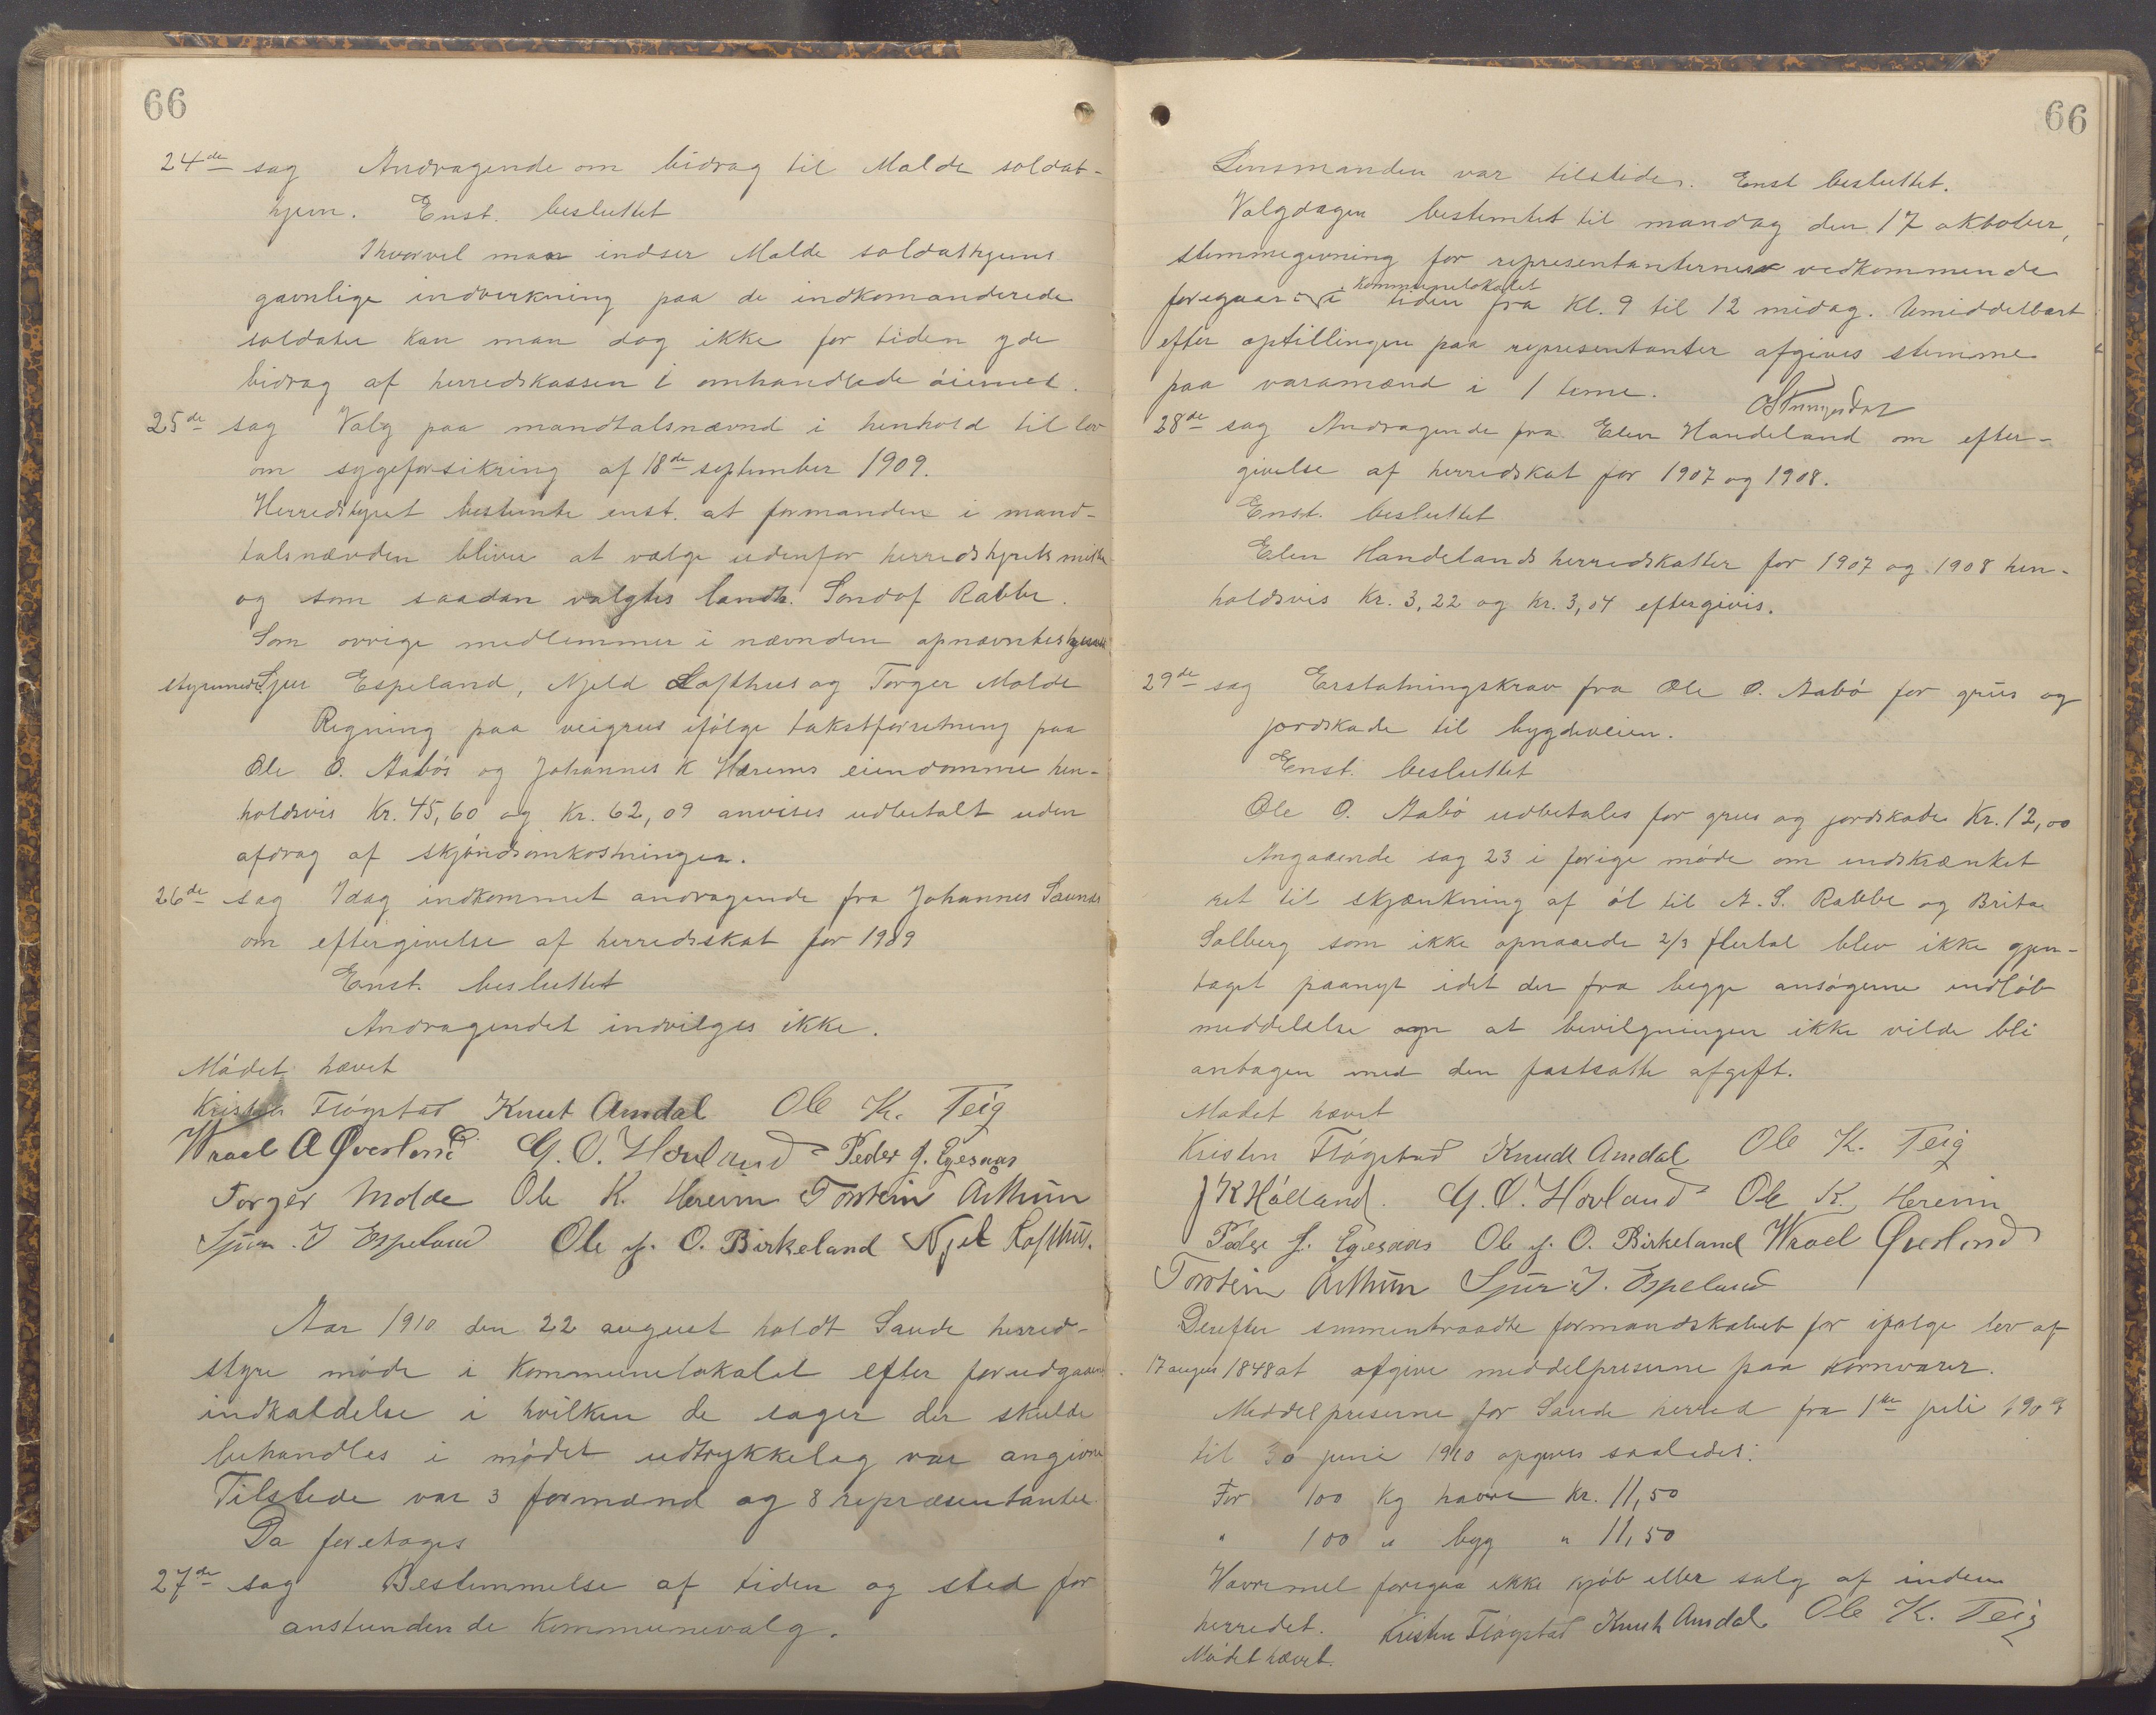 66
24de sag Andragende om bidrag til Malde soldat-
hjem. Enst. besluttet
Ihvorvel man indser Malde soldathjems
gavnlige indverkning paa de indkomanderede
soldater kan man dog ikke for tiden yde
bidrag af herredskassen i omhandlede öiemed.
25de sag Valg paa mandtalsnævnd i henhold til lov
om sygeforsikring af 18de september 1909.
Herredstyret bestemte enst. at formanden i mand-
talsnævnden bliver at vælge udenfor herredstyrets
og som saadan valgtes landh. Sondof Rabbe.
Som ovrige medlemmer i nævnden opnævntes
Sjur Espeland, Njeld Lofthus og Torger Molde
Regning paa veigrus ifölge takstforretning paa
Ole O. Aabös og Johannes K Herems eiendomme hen-
holdsvis Kr. 45,60 og Kr. 62,09 anvises udbetalt uden
afdrag af skjöndsomkostninger.
26de sag Idag indkommet andragende fra Johannes
om eftergivelse af herredsskat for 1909
Enst. besluttet
Andragendet indvilges ikke.
Mödet hævet
Kristen Flögstad Knut Amdal Ole K. Teig
Wrael A Øverland G. O. Hovland Peder J. Egesaas
Torger Molde Ole K. Hereim Torstein Arthun
Sjur J Espeland Ole J. O. Birkeland Njel Lofthus.
Aar 1910 den 22 august holdt Saude herred-
styre möde i Kommunelokalet efter forudgaaende
indkaldelse i hvilken de sager der skulde
behandles i mödet udtrykkelag var angivne
Tilstede var 3 formænd og 8 repræsentanter.
Da foretoges
27de sag Bestemmelse af tiden og sted for
anstundende Kommunevalg.
66
Lensmanden var tilstede. Enst besluttet.
Valgdagen bestemtet til mandag den 17 oktober,
stemmegivning for representanternes vedkommende
kommunelokalet
foregaar i tiden fra Kl. 9 til 12 midag. Umiddelbart
efter optillingen paa representanter afgives stemme
paa varamænd i 1 time.
28de sag Andragende fra Elen Handeland om efter-
givelse af herredskat for 1907 og 1908.
Enst. besluttet
Elen Handelands herredskatter for 1907 og 1908 hen-
holdsvis Kr. 3,22 og Kr. 3,04 eftergivis.
29de sag Erstatningskrav fra Ole O. Aabö for grus og
jordskade til bygdeveien.
Enst. besluttet
Ole O. Aabö udbetales for grus og jordskade Kr. 12,00
Angaaende sag 23 i forige möde om indskrænket
ret til skjænkning af öl til A. S. Rabbe og Brita
Solberg som ikke opnaaede 2/3 flertal blev ikke gjen-
taget paanyt idet der fra begge ansögerne indlöb
meddelelse om at bevilgningen ikke vilde bli
antagen med den fastsatte afgift.
Mödet hævet
Kristen Flögstad Knudt Amdal Ole K. Teig
J K Hölland. G. O. Hovland Ole K. Hereim
Peder J. Egesaas Ole J. O. Birkeland Wrael Øverland
Torstein Arthun Sjur J. Espeland
Derefter smmentraadte formandskabet for ifolge lov af
17 augus 1848 at afgive meddelpriserne paa kornvarer.
Meddelpriserne for Saude herred fra 1ste juli 1909
til 30 juni 1910 opgives saaledes:
For 100 Kg havre Kr. 11,50
" 100 " byg " 11,50
Havremel foregaa ikke kjöb eller salg af inden
herredet. Kristen Flögstad Knut Amdal Ole K. Teig
Mödet hævet.